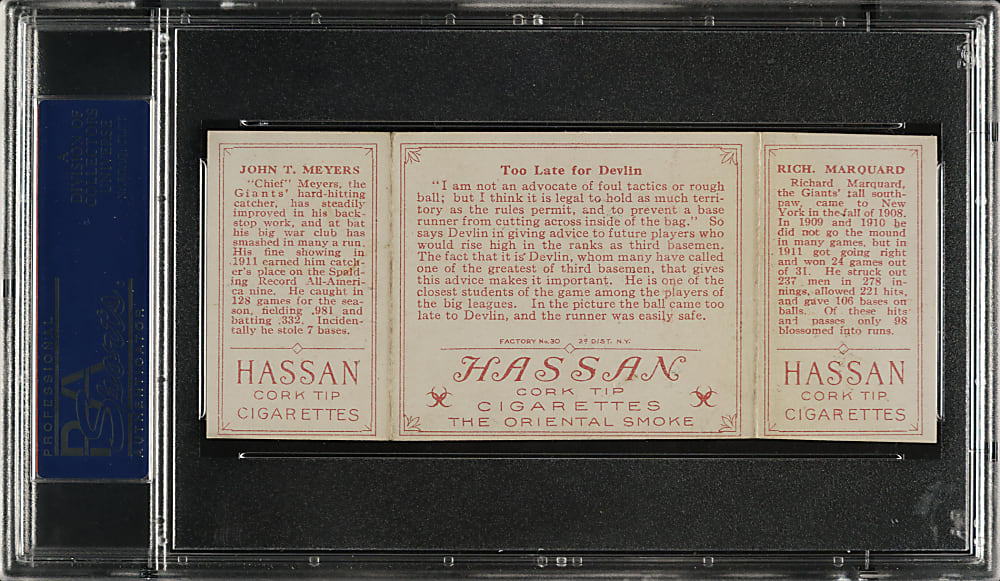 JOHN T. MEYERS
"Chief" Meyers, the
Giants' hard-hitting
catcher, has steadily
improved in his back-
stop work, and at bat
his big war club has
smashed in many a run.
His fine showing in
1911 earned him catch-
er's place on the Spald-
ing Record All-Ameri-
ca nine. He caught in
128 games for the sea-
son, fielding .981 and
batting .332. Inciden-
tally he stole 7 bases.
HASSAN
CORK TIP
CIGARETTES
Too Late for Devlin
"I am not an advocate of foul tactics or rough
ball; but I think it is legal to hold as much terri-
tory as the rules permit, and to prevent a base
runner from cutting across inside of the bag." So
says Devlin in giving advice to future players who
would rise high in the ranks as third basemen.
The fact that it is Devlin, whom many have called
one of the greatest of third basemen, that gives
this advice makes it important. He is one of the
closest students of the game among the players of
the big leagues. In the picture the ball came too
late to Devlin, and the runner was easily safe.
FACTORY No.30 2D DIST. N.Y.
HASSAN
CORK TIP
CIGARETTES
THE ORIENTAL SMOKE
RICH. MARQUARD
Richard Marquard,
the Giants' tall south-
paw, came to New
York in the fall of 1908.
In 1909 and 1910 he
did not go the mound
in many games, but in
1911 got going right
and won 24 games out
of 31. He struck out
237 men in 278 in-
nings, allowed 221 hits,
and gave 106 bases on
balls. Of these hits
and passes only 98
blossomed into runs.
HASSAN
CORK TIP
CIGARETTES
PROFESSIONAL
PSA
AUTHENTICATOR
A
DIVISION OF
COLLECTORS
UNIVERSE